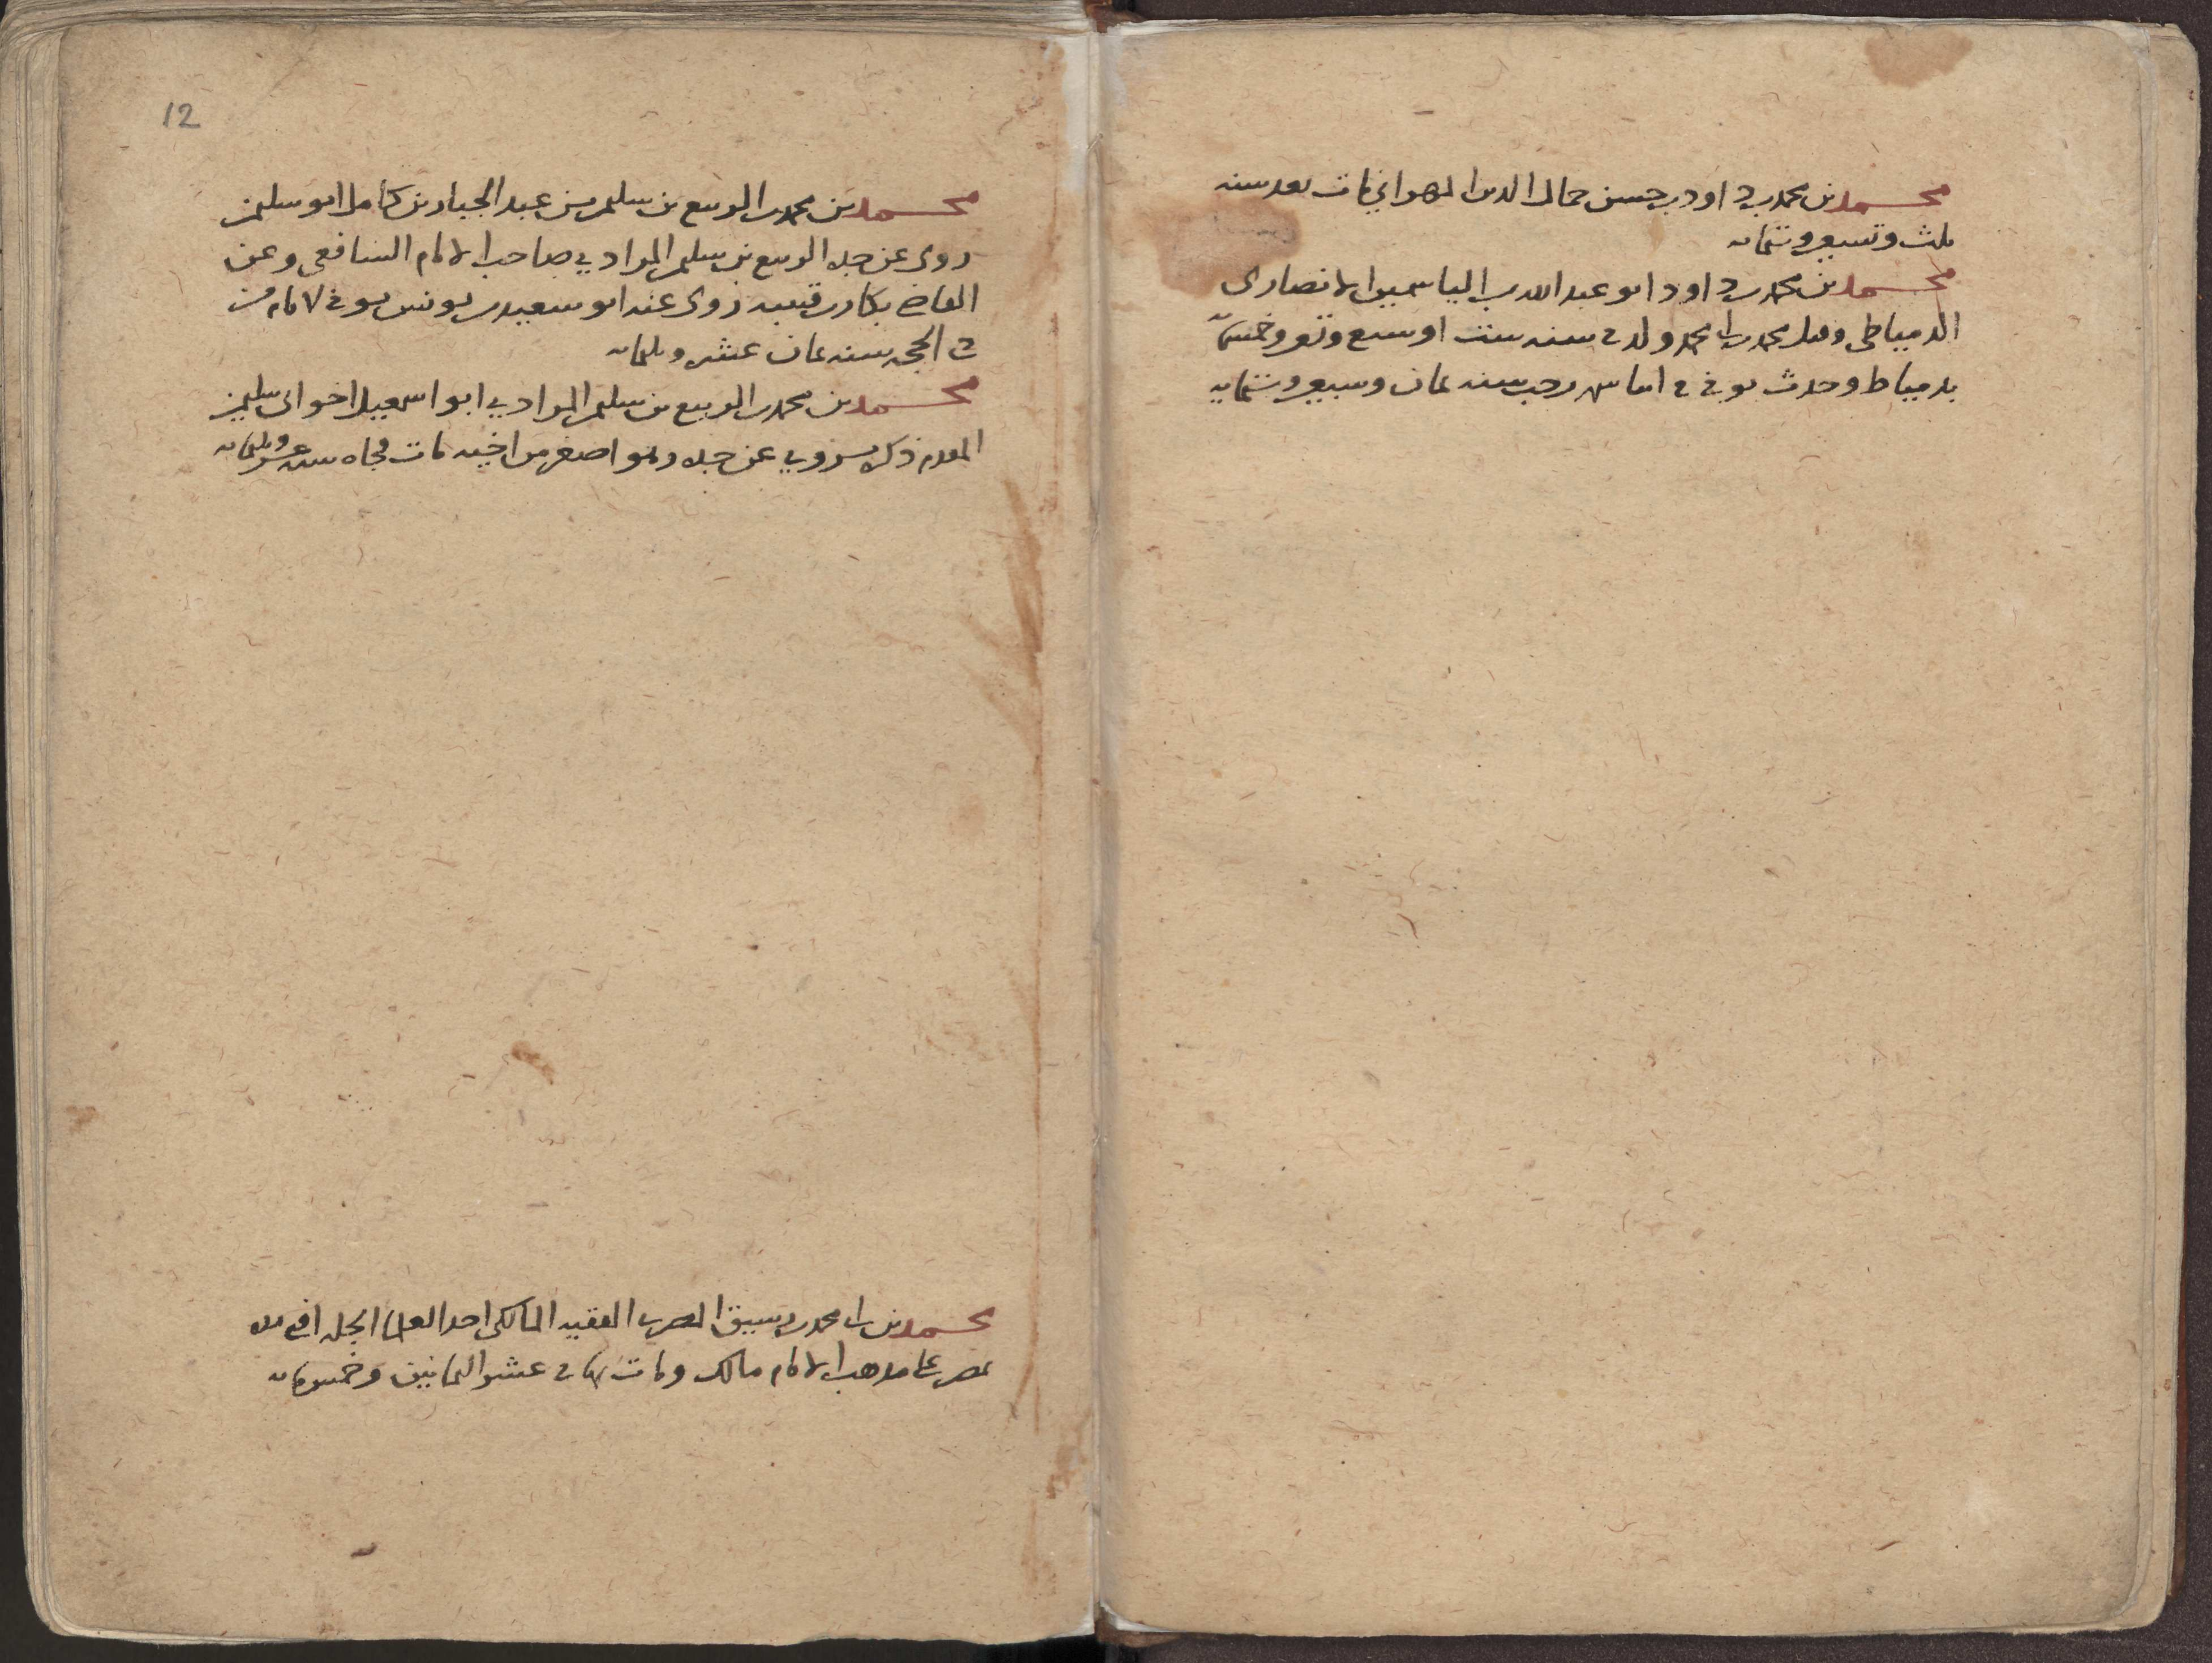 محمد بن محمد بن داود بن حسن جمال الدين مات بعد سنة
ثلث وتسعين وستمائة
محمد بن محمد بن داود ابو عبد الله بن الياسمين الانصارى
الدمياطى وقيل محمد بن ابى محمد ولد فى سنة ست او سبع وتسعين وخمسمائة
بدمياط وحدث توفى فى رجب سنة ثمان وسبعين وستمائة
12
محمد بن محمد بن الربيع بن سليمن بن عبد الجبار بن كامل ابو سليمن
روى عن جده الربيع بن سليمن المرادي صاحب الامام الشافعى وعن
القاضى بكار بن قتيبة روى عنه ابو سعيد بن يونس توفى لايام من
ذى الحجة سنة ثمان عشرة وثلثمائة
محمد بن محمد بن الربيع بن سليمن المرادي ابو اسمعيل اخو ابى سليمن
المقدم ذكره يروي عن جده وهو اصغر من اخيه مات فجاة سنة عشر وثلثمائة
محمد بن ابى محمد بن سبيق الفقيه المالكى احد العلما الجلة افتى
بمصر على مذهب الامام مالك ومات بها فى عشر الثمانين وخمسمائة